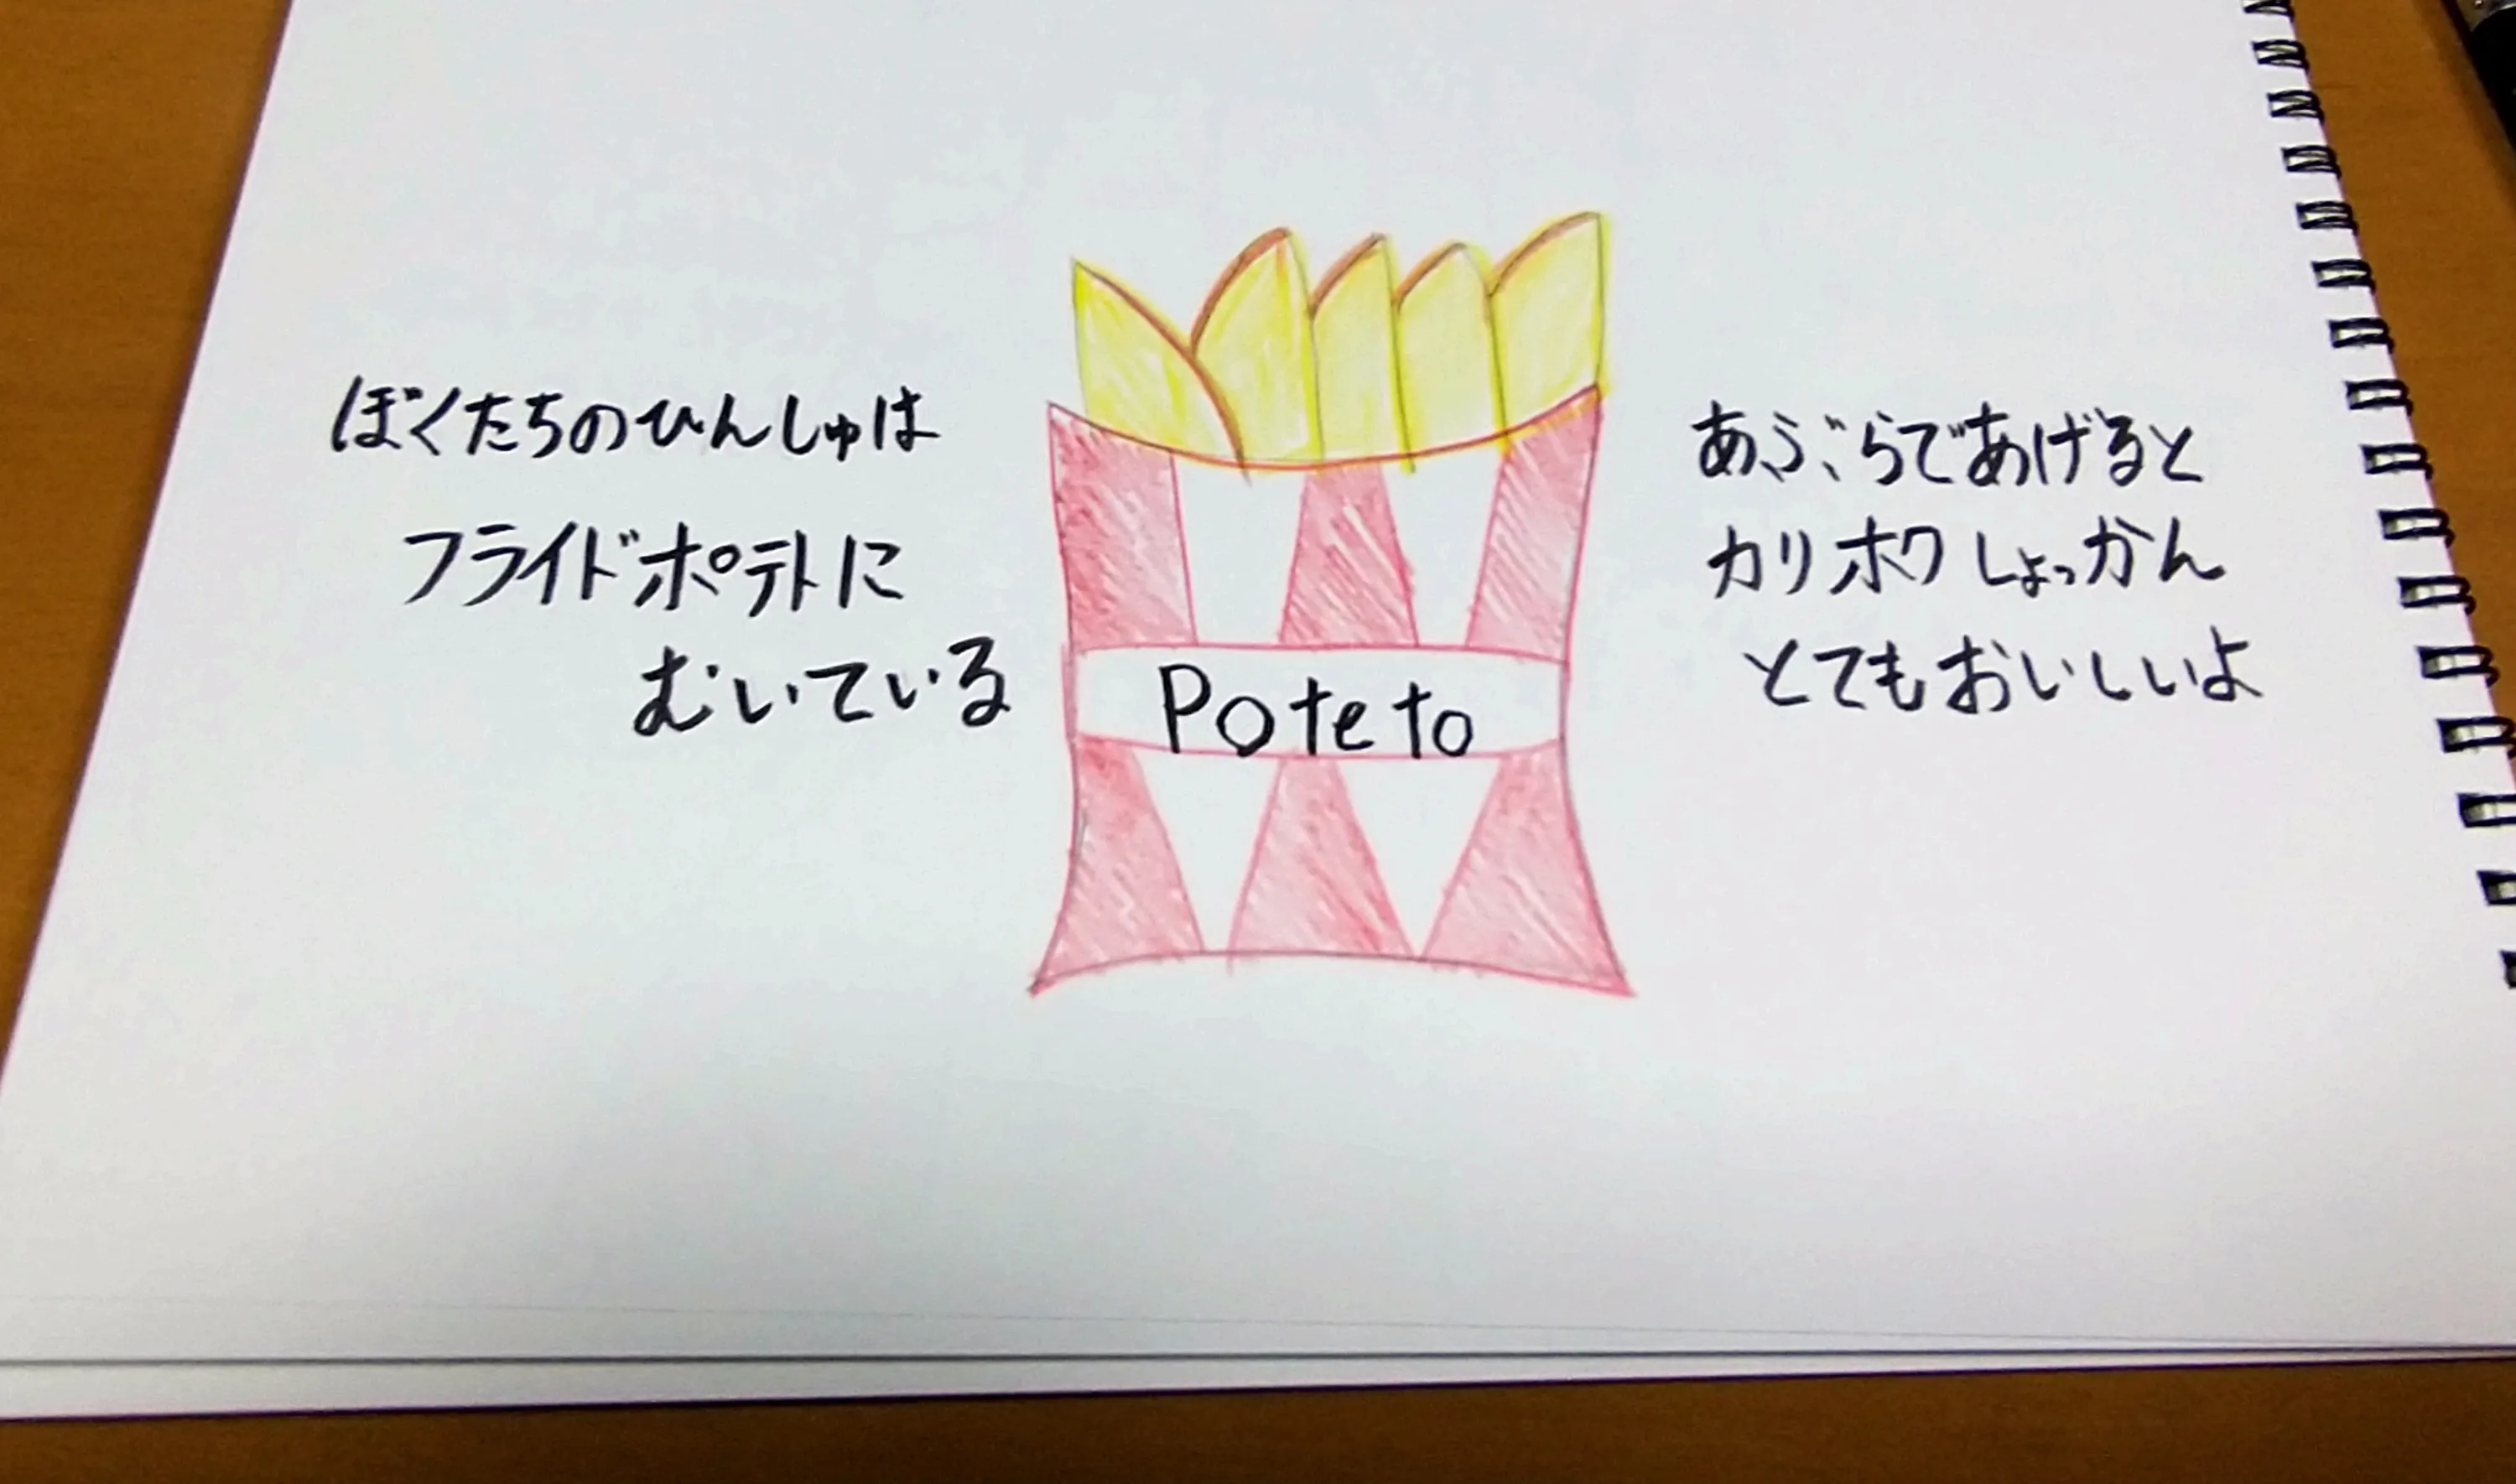 ぼくたちのひんしゅは
フライドポテトに
むいている
Poteto
あぶらであげると
カリホクしょっかん
とてもおいしいよ